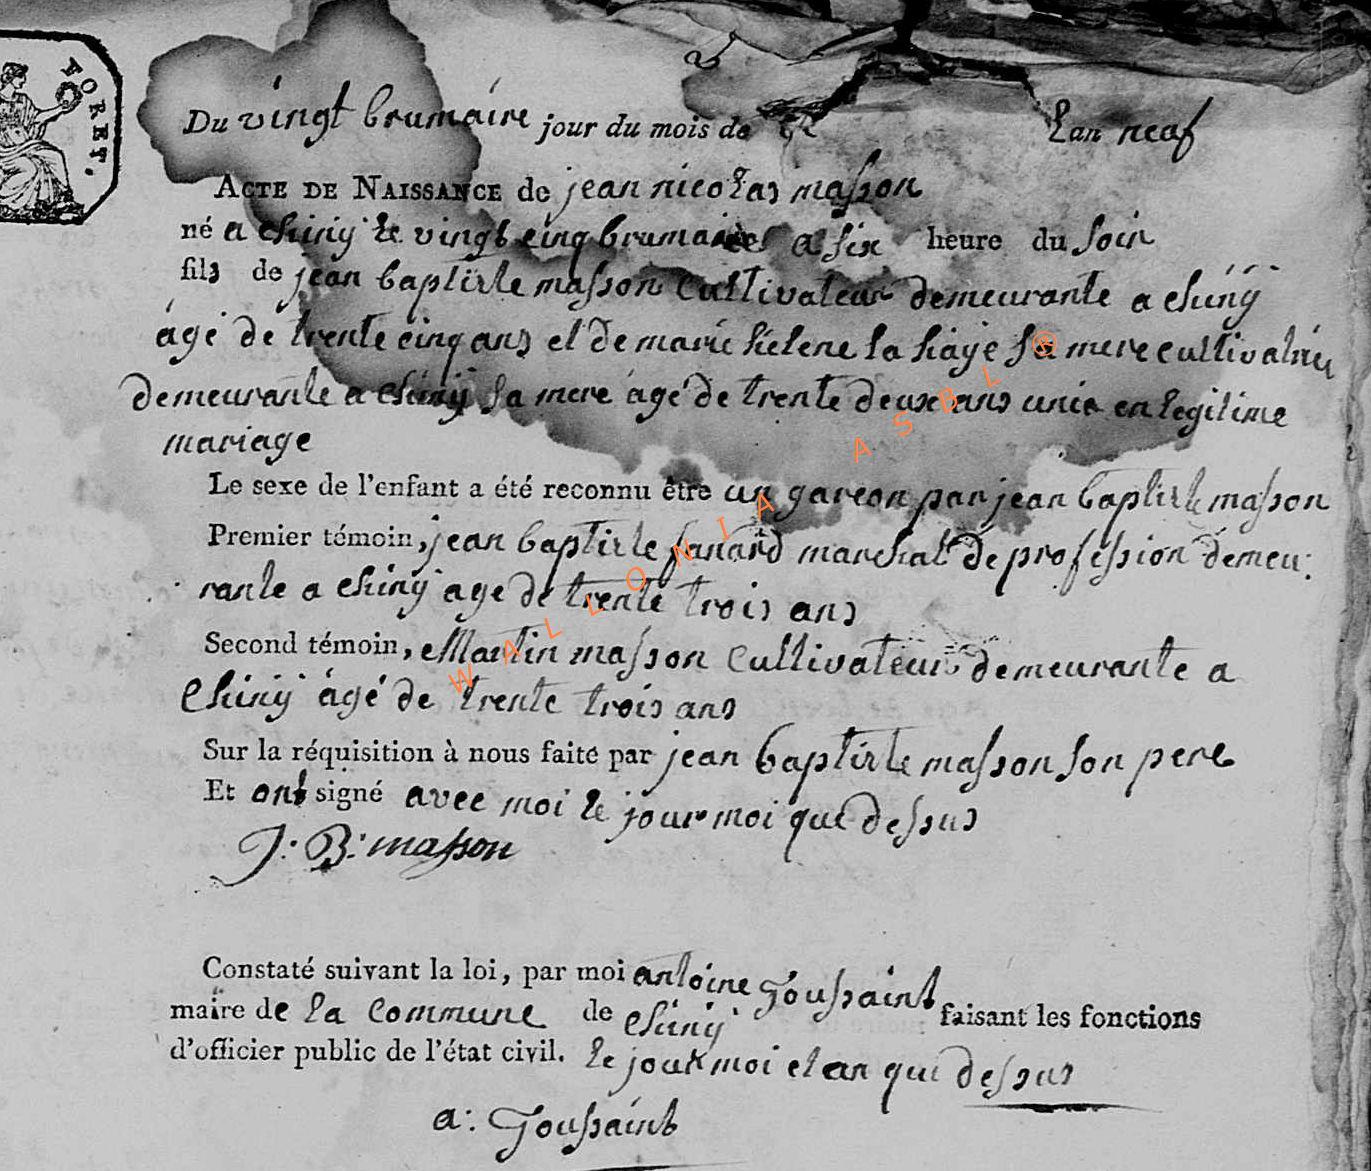 FORET.
Du vingt brumaire jour du mois de Lan neaf
ACTE DE NAISSANCE de jean nicolas masson
né a chiny le vingt cinq brumaire a six heure du soir
fils de jean baptiste masson Cultivateur demeurante a chiny
âgé de trente cinq ans et de marie helene la haye sa mere cultivatrice
demeurante a chiny sa mere âgé de trente deux ans unie en legitime
mariage
Le sexe de l'enfant a été reconnu être un garcon par jean baptiste masson
Premier témoin, jean baptiste fanard marchal de profession demeu:
rante a chiny age de trente trois ans
Second témoin, Martin masson Cultivateur demeurante a
Chiny âgé de trente trois ans
Sur la réquisition à nous faite par jean baptiste masson son pere
Et ont signé avec moi le jour moi que dessus
J: B: masson
Constaté suivant la loi, par moi antoine Goussaint
maire de la Commune de chiny faisant les fonctions
d'officier public de l'état civil. le jour moi et an que dessus
a: Goussaint
WALLONIA ASBL ®